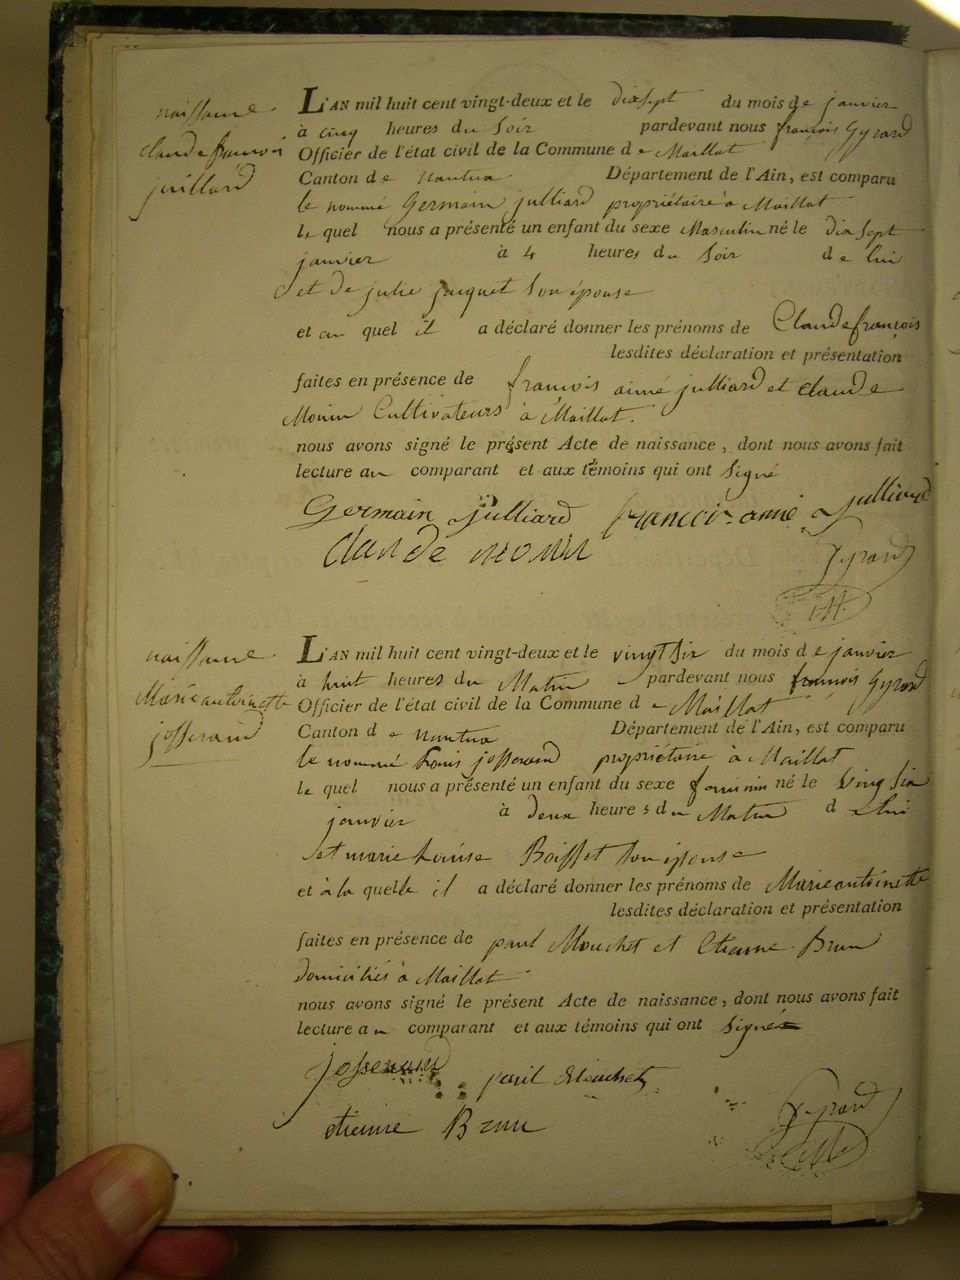 naissance
claude francois
juillard
L'AN mil huit cent vingt-deux et le dix sept du mois de janvier
à cinq heures du Soir pardevant nous françois Gyrard
Officier de l'état civil de la Commune de Maillat
Canton de nantua Département de l'Ain, est comparu
le nommé Germain julliard propriétaire à Maillat
le quel nous a présenté un enfant du sexe Masculin né le dix Sept
janvier à 4 heures du Soir de lui
et de julie jacquet Son épouse
et au quel il a déclaré donner les prénoms de Claude françois
lesdites déclaration et présentation
faites en présence de francois aimé julliard et claude
Monin Cultivateurs à Maillat.
nous avons signé le présent Acte de naissance, dont nous avons fait
lecture au comparant et aux témoins qui ont Signé
Germain julliard francoi aimé julliard
claude monin
Gyrard
naissance
Marie antoinette
josserand
L'AN mil huit cent vingt-deux et le vingt Six du mois de janvier
à huit heures du Matin pardevant nous francois Gyrard
Officier de l'état civil de la Commune de Maillat
Canton de nantua Département de l'Ain, est comparu
le nommé Louis josserand propriétaire à Maillat
le quel nous a présenté un enfant du sexe feminin né le Ving Six
janvier à deux heures du Matin de lui
et marie Louise Boisset Son épouse
et à la quelle il a déclaré donner les prénoms de Marie antoinette
lesdites déclaration et présentation
faites en présence de paul Mouchet et Etienne Brun
domiciliés à Maillat
nous avons signé le présent Acte de naissance, dont nous avons fait
lecture au comparant et aux témoins qui ont Signé
josserand paul Mouchet
etienne Brun
Gyrard